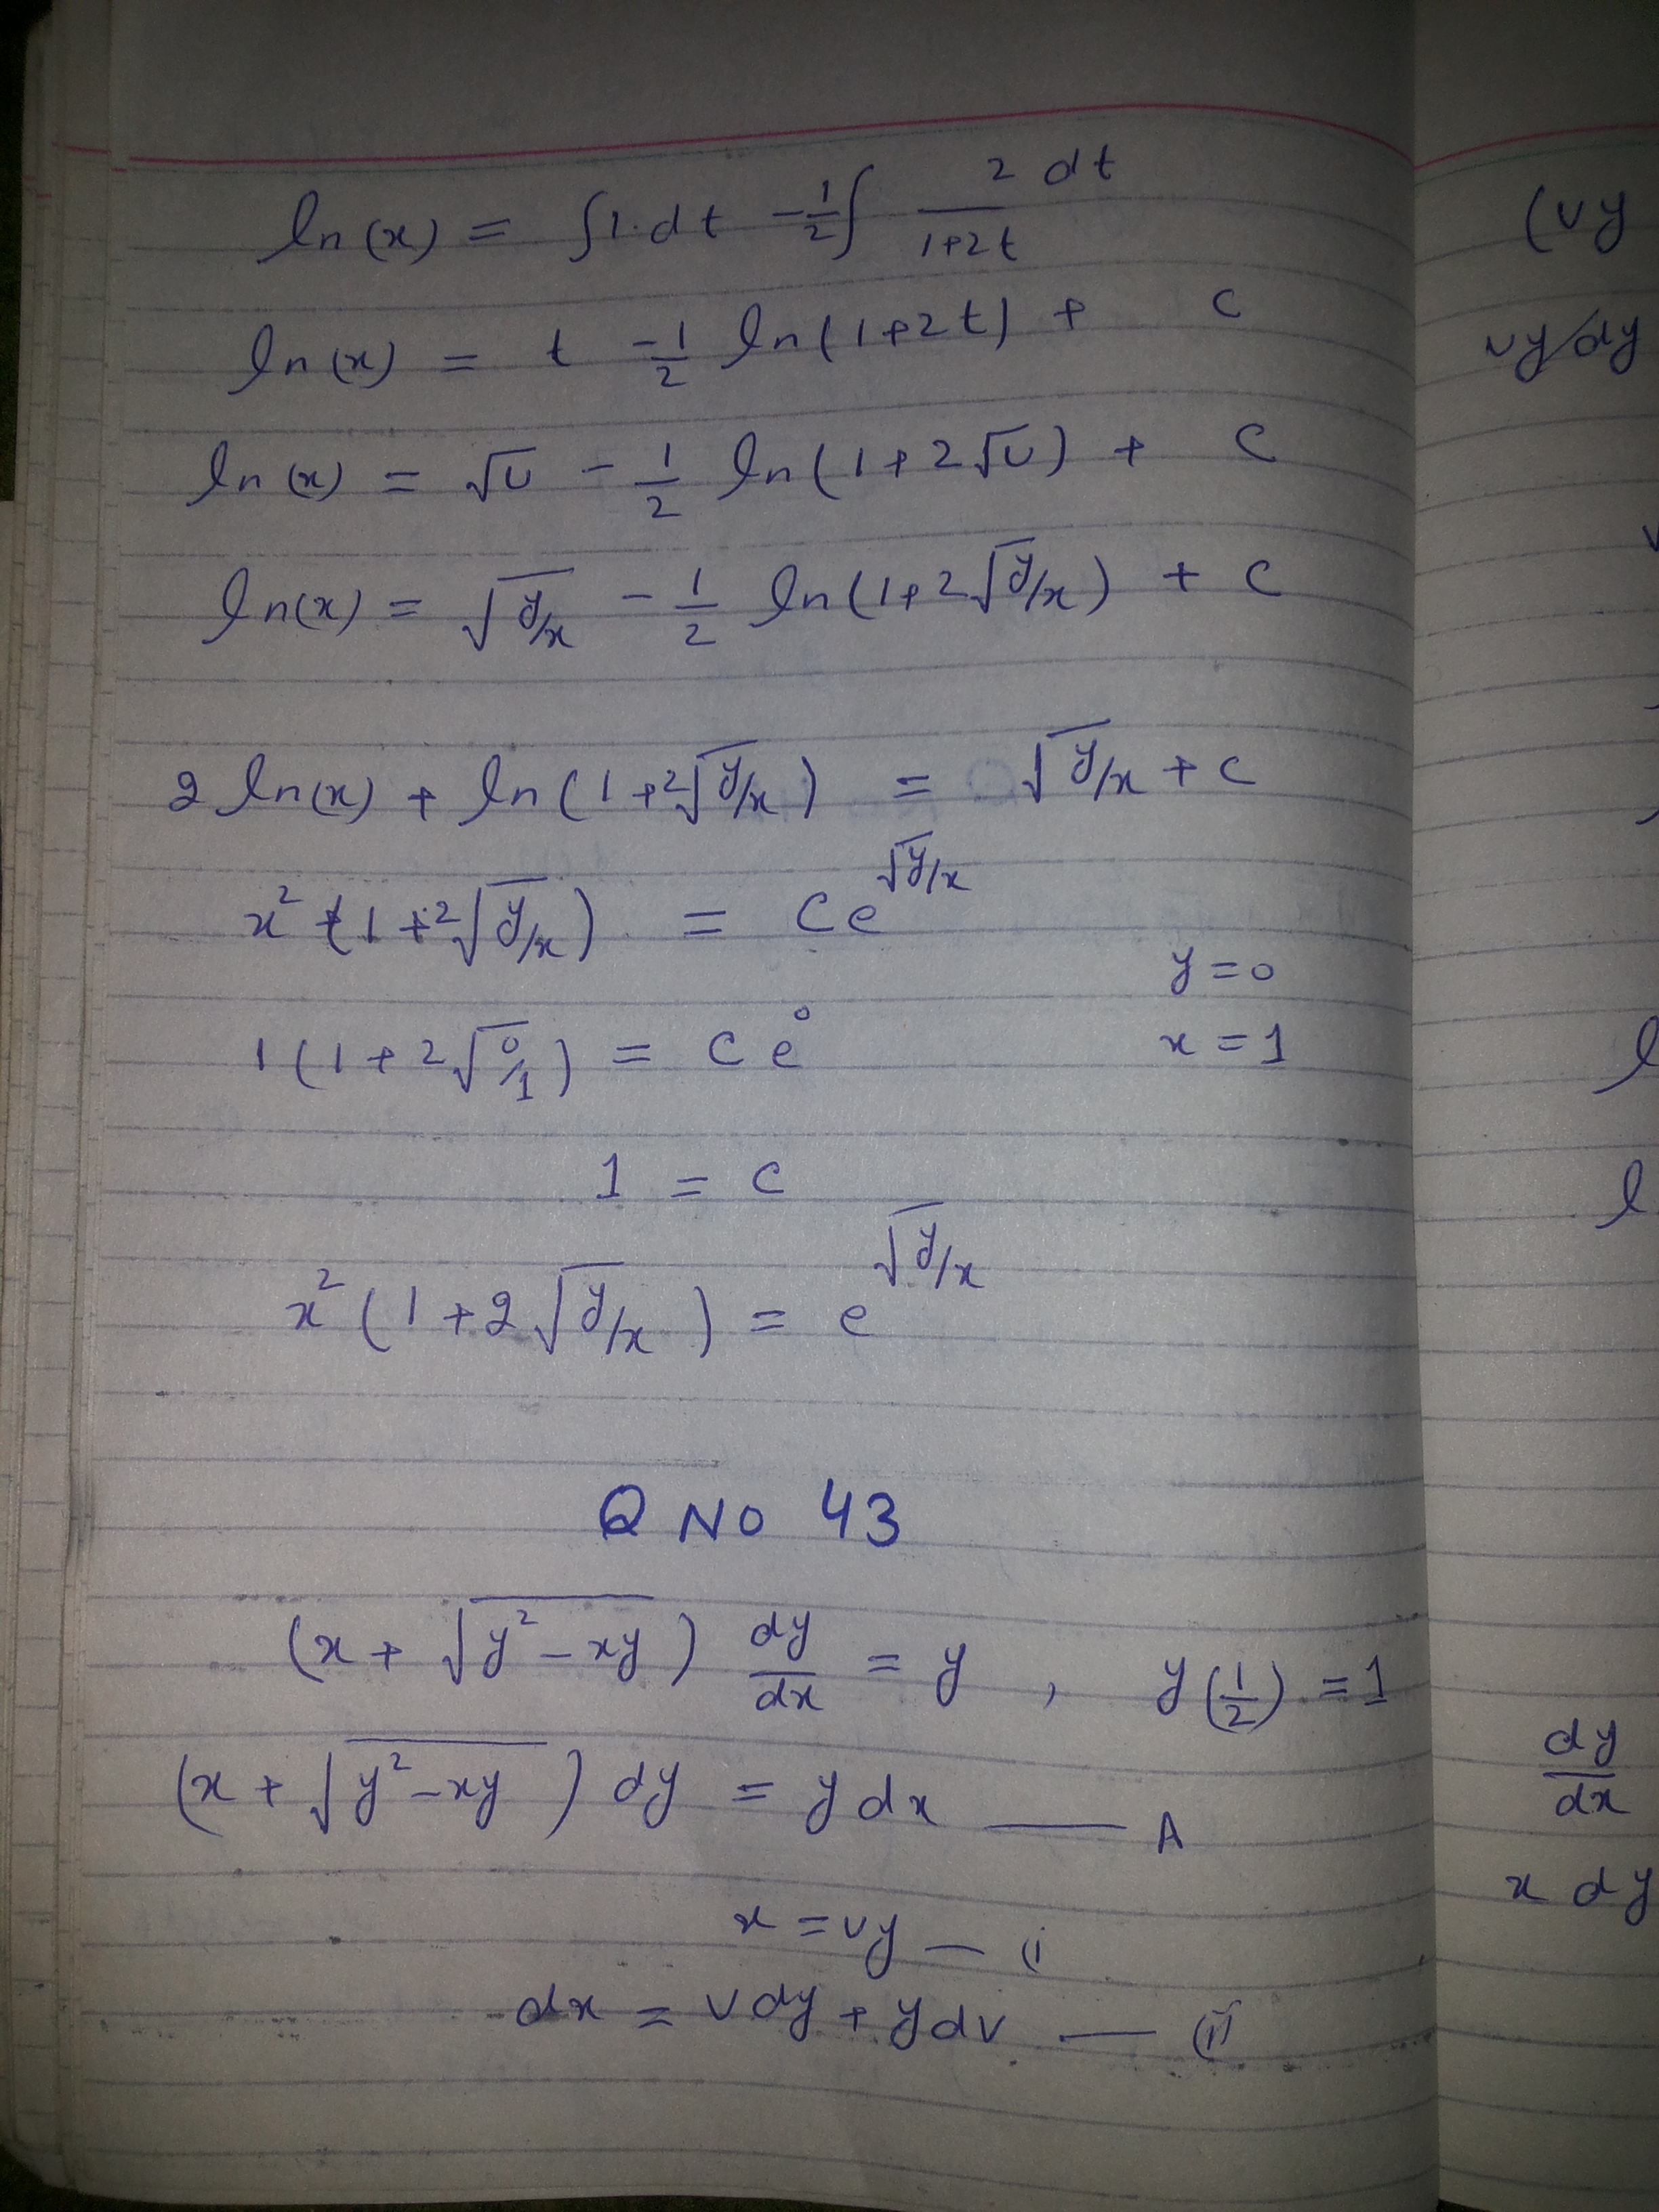 ln(x) = ∫1·dt - 1/2 ∫ 2 dt/1+2t
ln(x) = t - 1/2 ln(1+2t) + C
ln(x) = √v - 1/2 ln(1+2√v) + C
ln(x) = √y/x - 1/2 ln(1+2√y/x) + C
2 ln(x) + ln(1+2√y/x) = √y/x + C
x² (1+2√y/x) = C e^√y/x
y = 0
1(1+2√0/1) = C e^0
x = 1
1 = C
x² (1+2√y/x) = e^√y/x
Q No 43
(x + √y²-xy) dy/dx = y , y(1/2) = 1
(x + √y²-xy) dy = y dx — A
x = vy — (i
dx = v dy + y dv — (ii
(vy
vy dy
dy/dx
x dy